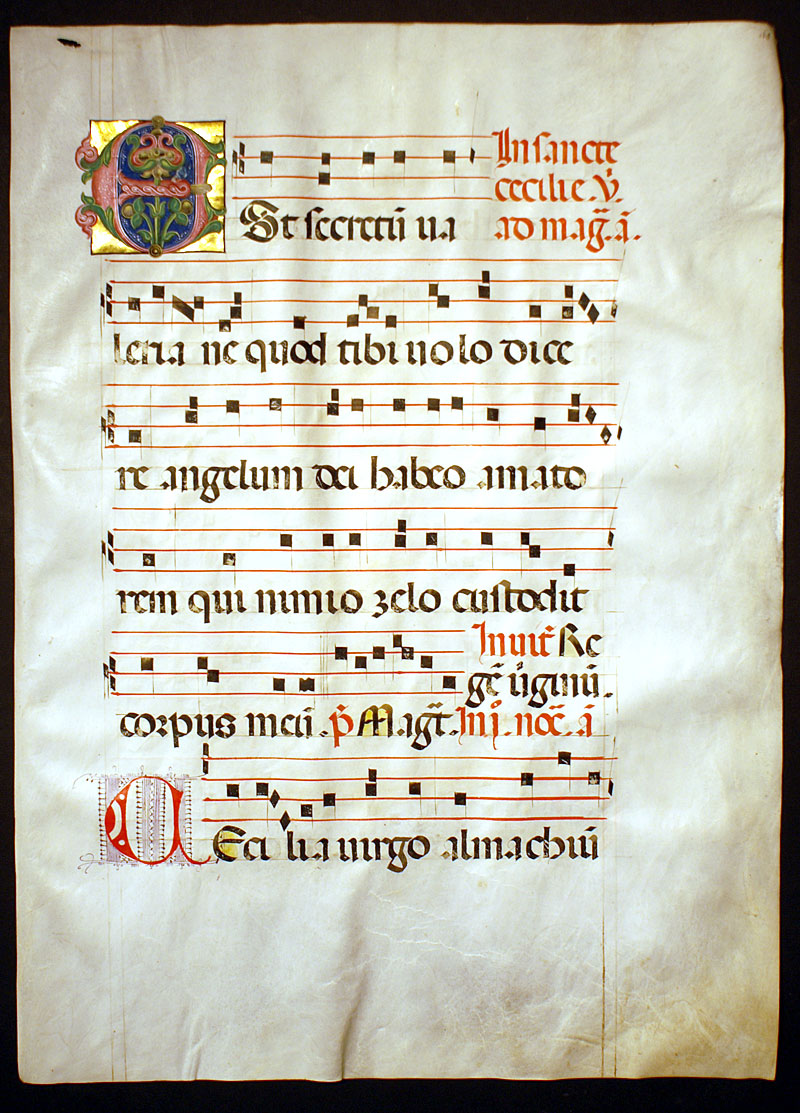 In sancte
cecilie. V̄.
ad mag̃. ã.
Est secretũ ua
leria ne quod tibi uolo dice
re angelum dei habeo amato
rem qui nimio zelo custodit
Inuit̃ Re
gẽ uiginũ.
corpus meũ. p̃ Mag̃t. In j. noc̃. ã
CEcilia uirgo almachiũ